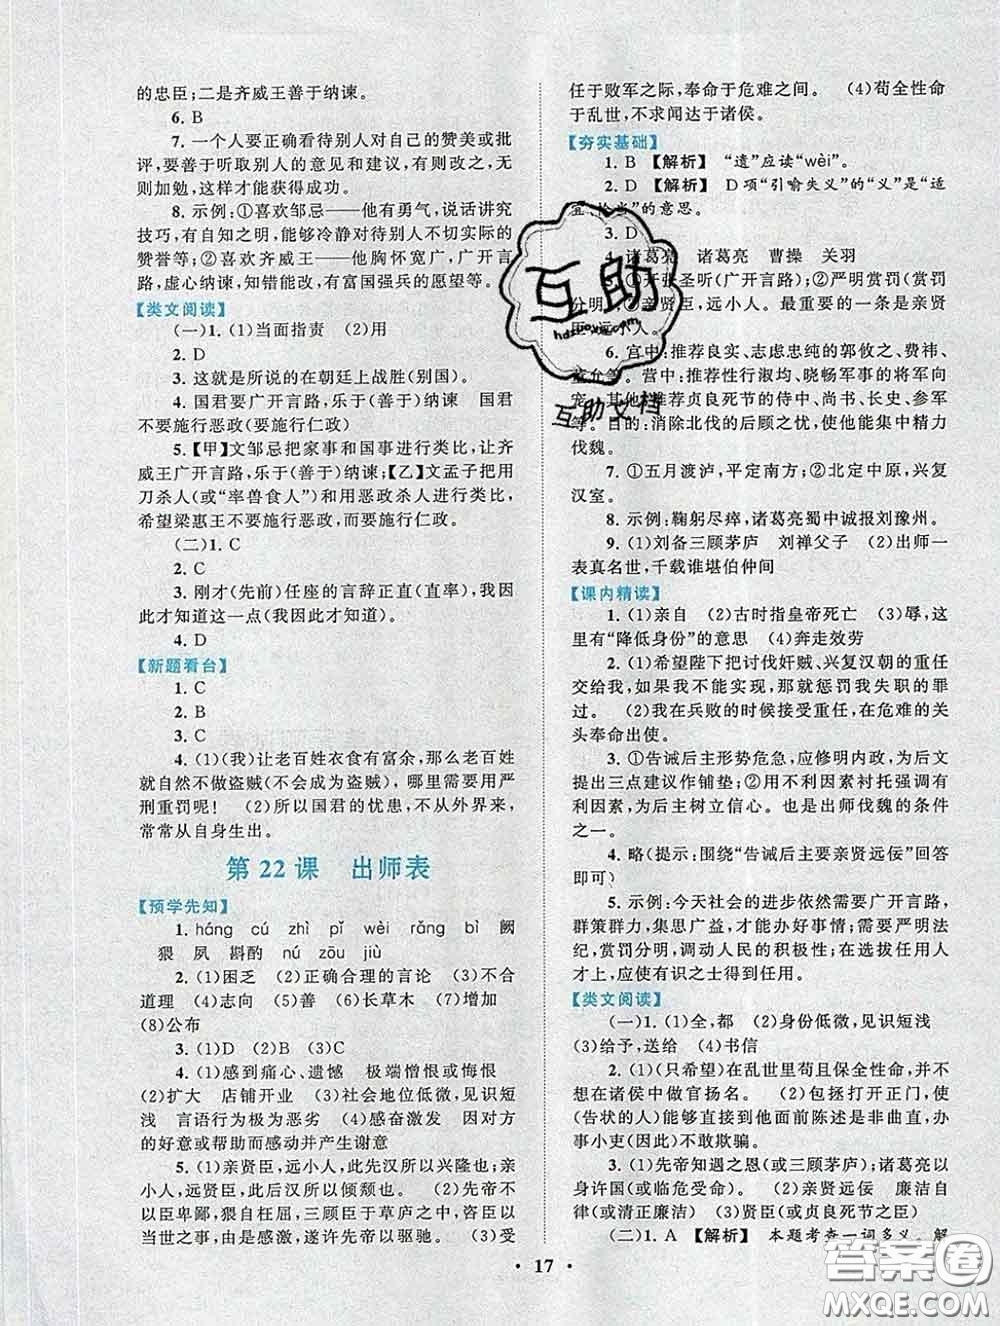 的忠臣;二是齐威王善于纳谏。
6. B
7. 一个人要正确看待别人对自己的赞美或批
评,要善于听取别人的意见和建议,有则改之,无
则加勉,这样才能获得成功。
8. 示例:①喜欢邹忌——他有勇气,说话讲究
技巧,有自知之明,能够冷静对待别人不切实际的
赞誉等;②喜欢齐威王——他胸怀宽广,广开言
路,虚心纳谏,知错能改,有富国强兵的愿望等。
【类文阅读】
(一)1. (1)当面指责 (2)用
2. D
3. 这就是所说的在朝廷上战胜(别国)。
4. 国君要广开言路,乐于(善于)纳谏 国君
不要施行恶政(要施行仁政)
5. 【甲】文邹忌把家事和国事进行类比,让齐
威王广开言路,乐于(善于)纳谏;【乙】文孟子把用
刀杀人(或“率兽食人”)和用恶政杀人进行类比,
希望梁惠王不要施行恶政,而要施行仁政。
(二)1. C
2. C
3. 刚才(先前)任座的言辞正直(直率),我因
此才知道这一点(我因此才知道)。
4. D
【新题看台】
1. C
2. B
3. C
4. (1)(我)让老百姓衣食有富余,那么老百姓
就自然不做盗贼(不会成为盗贼),哪里需要用严
刑重罚呢! (2)所以国君的忧患,不从外界来,
常常从自身生出。
第 22 课 出师表
【预学先知】
1. háng cú zhì pǐ wèi rǎng bì 阙
猥 夙 斟酌 nú zōu jiù
2. (1)困乏 (2)正确合理的言论 (3)不合
道理 (4)志向 (5)善 (6)长草木 (7)增加
(8)公布
3. (1)D (2)B (3)C
4. (1)感到痛心、遗憾 极端憎恨或悔恨
(2)扩大 店铺开业 (3)社会地位低微,见识短
浅 言语行为极为恶劣 (4)感奋激发 因对方
的好意或帮助而感动并产生谢意
5. (1)亲贤臣,远小人,此先汉所以兴隆也;亲
小人,远贤臣,此后汉所以倾颓也。 (2)先帝不
以臣卑鄙,猥自枉屈,三顾臣于草庐之中,咨臣以
当世之事,由是感激,遂许先帝以驱驰。 (3)受
任于败军之际,奉命于危难之间。 (4)苟全性命
于乱世,不求闻达于诸侯。
【夯实基础】
1. B 【解析】 “遗”应读“wèi”。
2. D 【解析】 D项“引喻失义”的“义”是“适
宜、恰当”的意思。
3. D
4. 诸葛亮 诸葛亮 曹操 关羽
5. ①开张圣听(广开言路);②严明赏罚(赏罚
分明);③亲贤臣,远小人。最重要的一条是亲贤
臣,远小人。
6. 宫中:推荐良实、志虑忠纯的郭攸之、费祎、
董允等。营中:推荐性行淑均、晓畅军事的将军向
宠。其他:推荐贞良死节的侍中、尚书、长史、参军
等。目的:消除北伐的后顾之忧,使他能集中精力
伐魏。
7. ①五月渡泸,平定南方;②北定中原,兴复
汉室。
8. 示例:鞠躬尽瘁,诸葛亮蜀中诚报刘豫州。
9. (1)刘备三顾茅庐 刘禅父子 (2)出师一
表真名世,千载谁堪伯仲间
【课内精读】
1. (1)亲自 (2)古时指皇帝死亡 (3)辱,这
里有“降低身份”的意思 (4)奔走效劳
2. (1)希望陛下把讨伐奸贼、兴复汉朝的重任
交给我,如果我不能实现,那就惩罚我失职的罪
过。 (2)我在兵败的时候接受重任,在危难的关
头奉命出使。
3. ①告诫后主形势危急,应修明内政,为后文
提出三点建议作铺垫;②用不利因素衬托强调有
利因素,为后主树立信心。也是出师伐魏的条件
之一。
4. 略(提示:围绕“告诫后主要亲贤远佞”回答
即可)
5. 示例:今天社会的进步依然需要广开言路,
群策群力,集思广益,才能办好事情;需要严明法
纪,赏罚分明,调动人民的积极性;在选拔任用人
才上,应使有识之士得到任用。
【类文阅读】
(一)1. (1)全,都 (2)身份低微,见识短浅
(3)给予,送给 (4)书信
2. (1)(只希望)在乱世里苟且保全性命,不想
在诸侯中做官扬名。 (2)包拯打开正门,使
(告状的人)能够直接到他面前陈述是非曲直,办
事小吏(因此)不敢欺骗。
3. (1)先帝知遇之恩(或三顾茅庐);诸葛亮以
身许国(或临危受命) (2)亲贤远佞 廉洁自
律(或清正廉洁) (3)贤臣(或贞良死节之臣)
(二)1. A 【解析】 本题考查一词多义。解
• 17 •
互助
hdzuoye.com
互助文档
答案圈
MXQE.COM